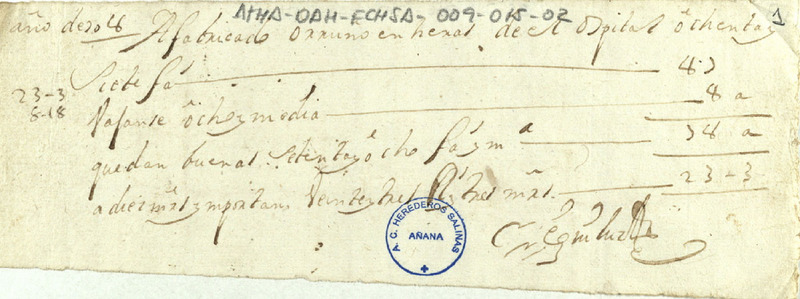 AÑHA-OAH-FCHSA-009-015-02
1
año de 1708 A fabricado orruno en heras de el ospital ôchentay
siete fas 87
23-3
8-18
vajanse ôchoymedia 8 a
quedan buenas setentayôcho fas y ma 78 a
a diez mrs ymportan veinteytres Rs ytres mrs 23-3
A. C. HEREDEROS SALINAS
AÑANA